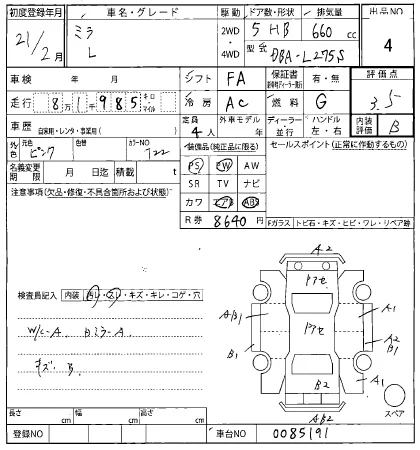 初度登録年月 車名・グレード 駆動 ドア数・形状 排気量 出品NO
21/2月 ミラ L 2WD・4WD 5 HB 660 cc 4
型式 DBA-L275S
車検 年 月 シフト FA 保証書 有・無 評価点
走行 8万1千985 キロ・マイル 冷房 AC 燃料 G 3.5
車歴 自家用・レンタ・事業用( ) 定員 4人 外車モデル 年 ディーラー・並行 ハンドル 左・右 内装評価 B
外色 元色 ピンク 色替 カラーNO T22 装備品(純正品に限る) セールスポイント(正常に作動するもの)
名義変更期限 月 日迄 積載 t PS PW AW
注意事項(欠品・修復・不具合箇所および状態) SR TV ナビ
カワ エアB ABS
R券 8640円 Fガラス トビ石・キズ・ヒビ・ワレ・リペア跡
検査員記入 内装 汚レ・スレ・キズ・キレ・コゲ・穴
W/C-A. Bミラ-A.
キズ. B.
A2
アセ
A B1
アセ
A1
A2 B1
B1
B2
A1
AB2
スペア
長さ cm 幅 cm 高さ cm
登録NO 車台NO 0085191